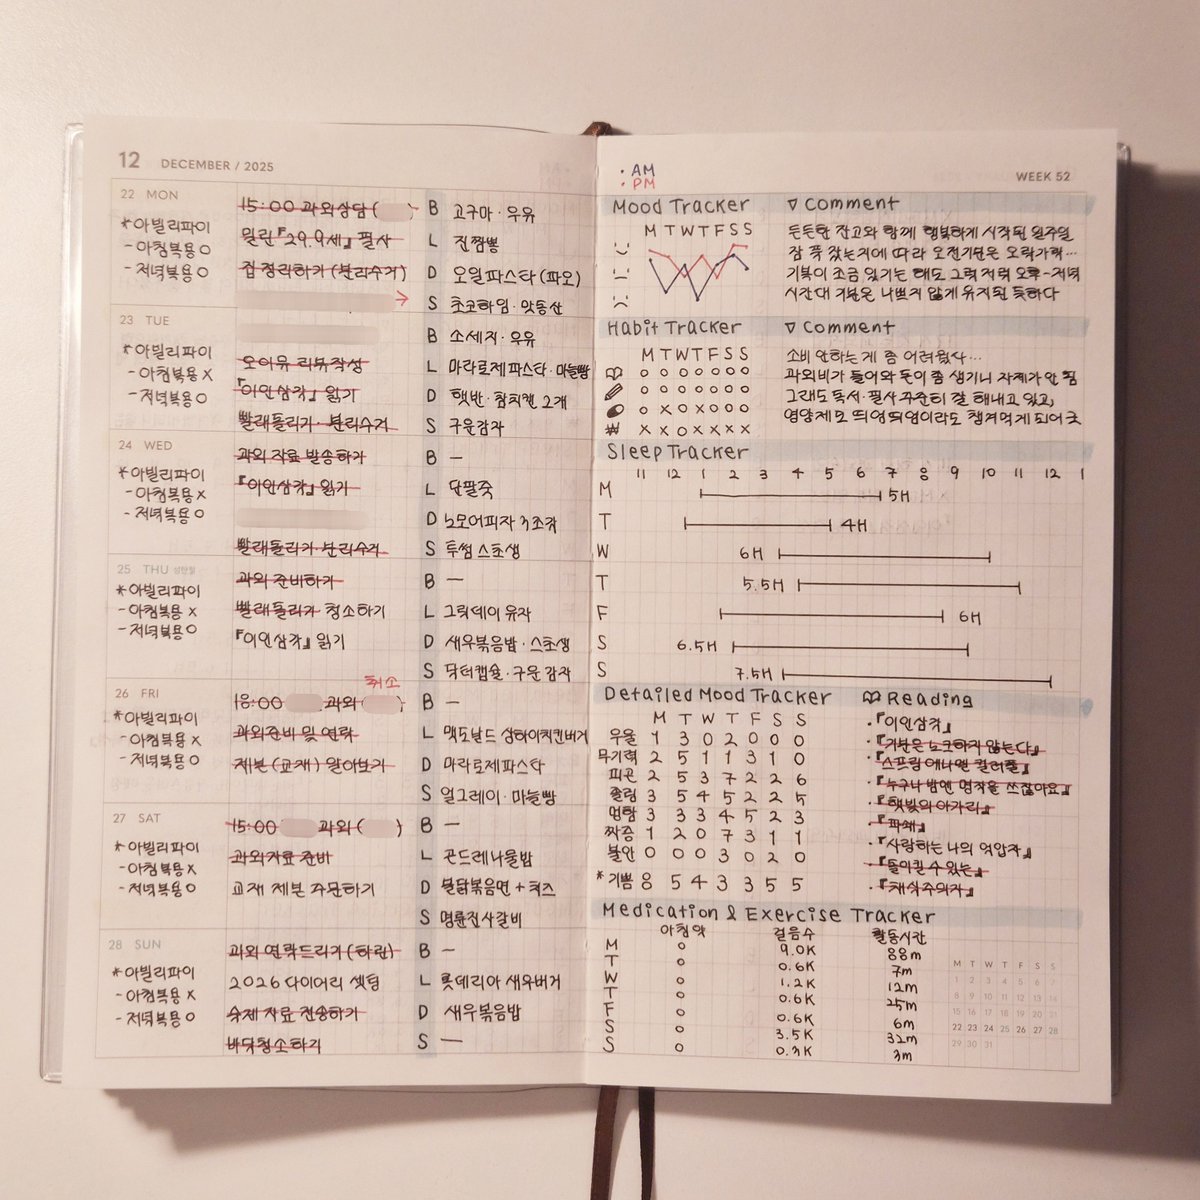 12 DECEMBER / 2025
22 MON
*아빌리파이
- 아침복용 O
- 저녁복용 O
15:00 과외상담 ( )
밀린 『29.9세』 필사
집 정리하기 (분리수거)
→
B 고구마 · 우유
L 진짬뽕
D 오일파스타 (파오)
S 초코하임 · 맛동산
23 TUE
*아빌리파이
- 아침복용 X
- 저녁복용 O
오이뮤 리뷰작성
『이인삼각』 읽기
빨래돌리기 · 분리수거
B 소세지 · 우유
L 마라로제파스타 · 마늘빵
D 햇반 · 참치캔 2개
S 구운감자
24 WED
*아빌리파이
- 아침복용 X
- 저녁복용 O
과외 자료 발송하기
『이인삼각』 읽기
빨래돌리기 · 분리수거
B —
L 단팥죽
D 노모어피자 3조각
S 투썸 스초생
25 THU 성탄절
*아빌리파이
- 아침복용 X
- 저녁복용 O
과외 준비하기
빨래돌리기 · 청소하기
『이인삼각』 읽기
B —
L 그릭데이 유자
D 새우볶음밥 · 스초생
S 닥터캡슐 · 구운감자
26 FRI
*아빌리파이
- 아침복용 X
- 저녁복용 O
취소
18:00 과외 ( )
과외준비 및 연락
제본 (교재) 알아보기
B —
L 맥도날드 상하이치킨버거
D 마라로제파스타
S 얼그레이 · 마늘빵
27 SAT
*아빌리파이
- 아침복용 X
- 저녁복용 O
15:00 과외 ( )
과외자료 준비
교재 제본 주문하기
B —
L 곤드레나물밥
D 불닭볶음면 + 치즈
S 명륜진사갈비
28 SUN
*아빌리파이
- 아침복용 X
- 저녁복용 O
과외 연락드리기 (하린)
2026 다이어리 셋팅
숙제 자료 전송하기
바닥청소하기
B —
L 롯데리아 새우버거
D 새우볶음밥
S —
: AM
: PM
WEEK 52
Mood Tracker
M T W T F S S
▽ Comment
든든한 잔고와 함께 행복하게 시작된 일주일
잠 푹 잤는지에 따라 오전기분은 오락가락…
기복이 조금 있기는 해도 그럭저럭 오후~저녁
시간대 기분은 나쁘지 않게 유지된 듯하다
Habit Tracker
M T W T F S S
O O O O O O O
O O O O O O O
O X O X O O O
₩ X X O X X X X
▽ Comment
소비 안하는 게 좀 어려웠사…
과외비가 들어와 돈이 좀 생기니 자제가 안 됨
그래도 독서 · 필사 꾸준히 잘 해내고 있고,
영양제도 띄엄띄엄이라도 챙겨먹게 되어 굿
Sleep Tracker
11 12 1 2 3 4 5 6 7 8 9 10 11 12 1
M 5H
T 4H
W 6H
T 5.5H
F 6H
S 6.5H
S 7.5H
Detailed Mood Tracker
M T W T F S S
우울 1 3 0 2 0 0 0
무기력 2 5 1 1 3 1 0
피곤 2 5 3 7 2 2 6
졸림 3 5 4 5 2 2 5
멍함 3 3 3 4 5 2 3
짜증 1 2 0 7 3 1 1
불안 0 0 0 3 0 2 0
* 기쁨 8 5 4 3 3 5 5
Reading
· 『이인삼각』
· 『기분은 노크하지 않는다』
· 『스프링 애나멜 컬러풀』
· 『누구나 밤엔 명작을 쓰잖아요』
· 『햇빛의 아가리』
· 『파쇄』
· 『사랑하는 나의 억압자』
· 『돌이킬 수 있는』
· 『채식주의자』
Medication & Exercise Tracker
아침약 걸음수 활동시간
M O 9.0K 88m
T O 0.6K 7m
W O 1.2K 12m
T O 0.6K 25m
F O 0.6K 6m
S O 3.5K 32m
S O 0.3K 3m
M T W T F S S
1 2 3 4 5 6 7
8 9 10 11 12 13 14
15 16 17 18 19 20 21
22 23 24 25 26 27 28
29 30 31